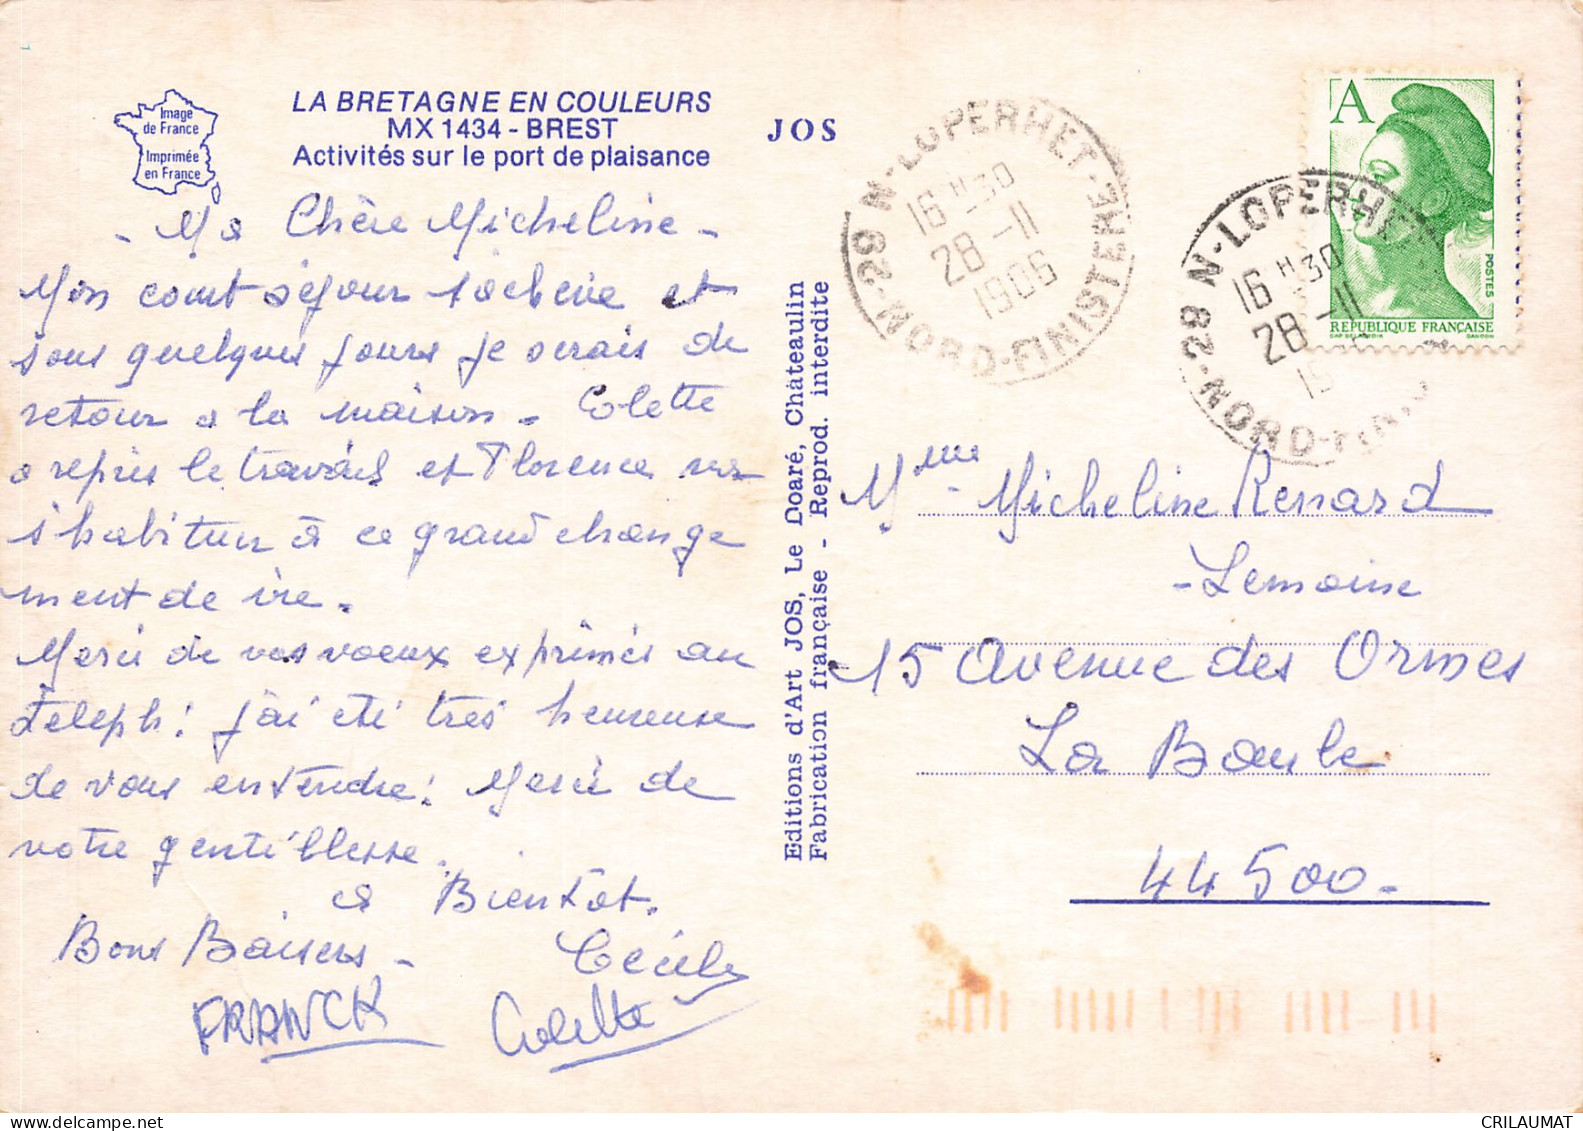 Image
de France
Imprimée
en France
LA BRETAGNE EN COULEURS
MX 1434 - BREST
Activités sur le port de plaisance
JOS
- Ma Chère Micheline -
Mon court séjour s'achève et
sous quelques jours je serais de
retour à la maison - Colette
a repris le travail et Florence
s'habituer à ce grand change
ment de vie.
Merci de vos voeux exprimés au
teleph: j'ai été très heureuse
de vous entendre: Merci de
votre gentillesse.
à Bientot.
Bons Baisers - Cécile
FRANCK Colette
Editions d'Art JOS, Le Doaré, Châteaulin
Fabrication française - Reprod. interdite
29 N-LOPERHET-
16 H 30
28-11
1906
-NORD-FINISTERE
A
POSTES
REPUBLIQUE FRANÇAISE
GANDON
29 N-LOPERHE
16 H 30
28-11
19
-NORD-FINI
Mme - Micheline Renard
- Lemoine
15 Avenue des Ormes
La Baule
44500 -
CRILAUMAT